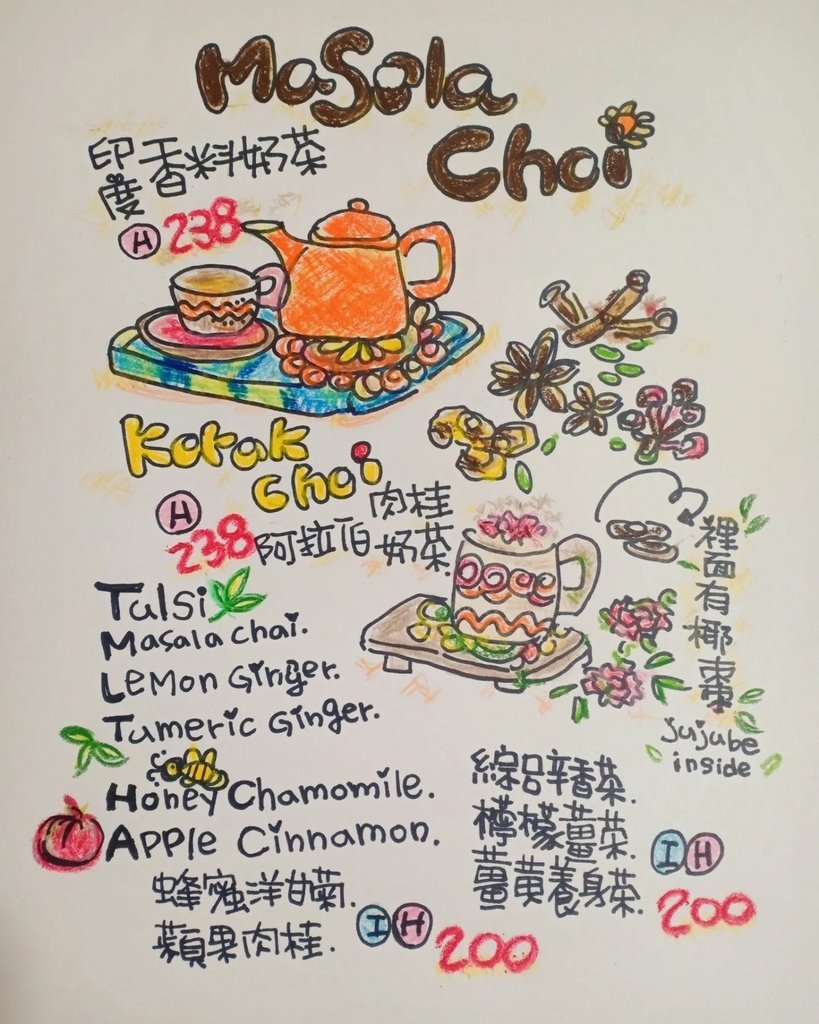 Masala
Chai
印度香料奶茶
H 238
Karak
Chai
H
238 阿拉伯肉桂奶茶.
裡面有椰棗
jujube
inside
Tulsi
Masala chai.
Lemon Ginger.
Tumeric Ginger.
Honey Chamomile.
Apple Cinnamon.
蜂蜜洋甘菊.
蘋果肉桂.
I H 200
綜合辛香茶.
檸檬薑茶.
薑黃養身茶.
I H
200